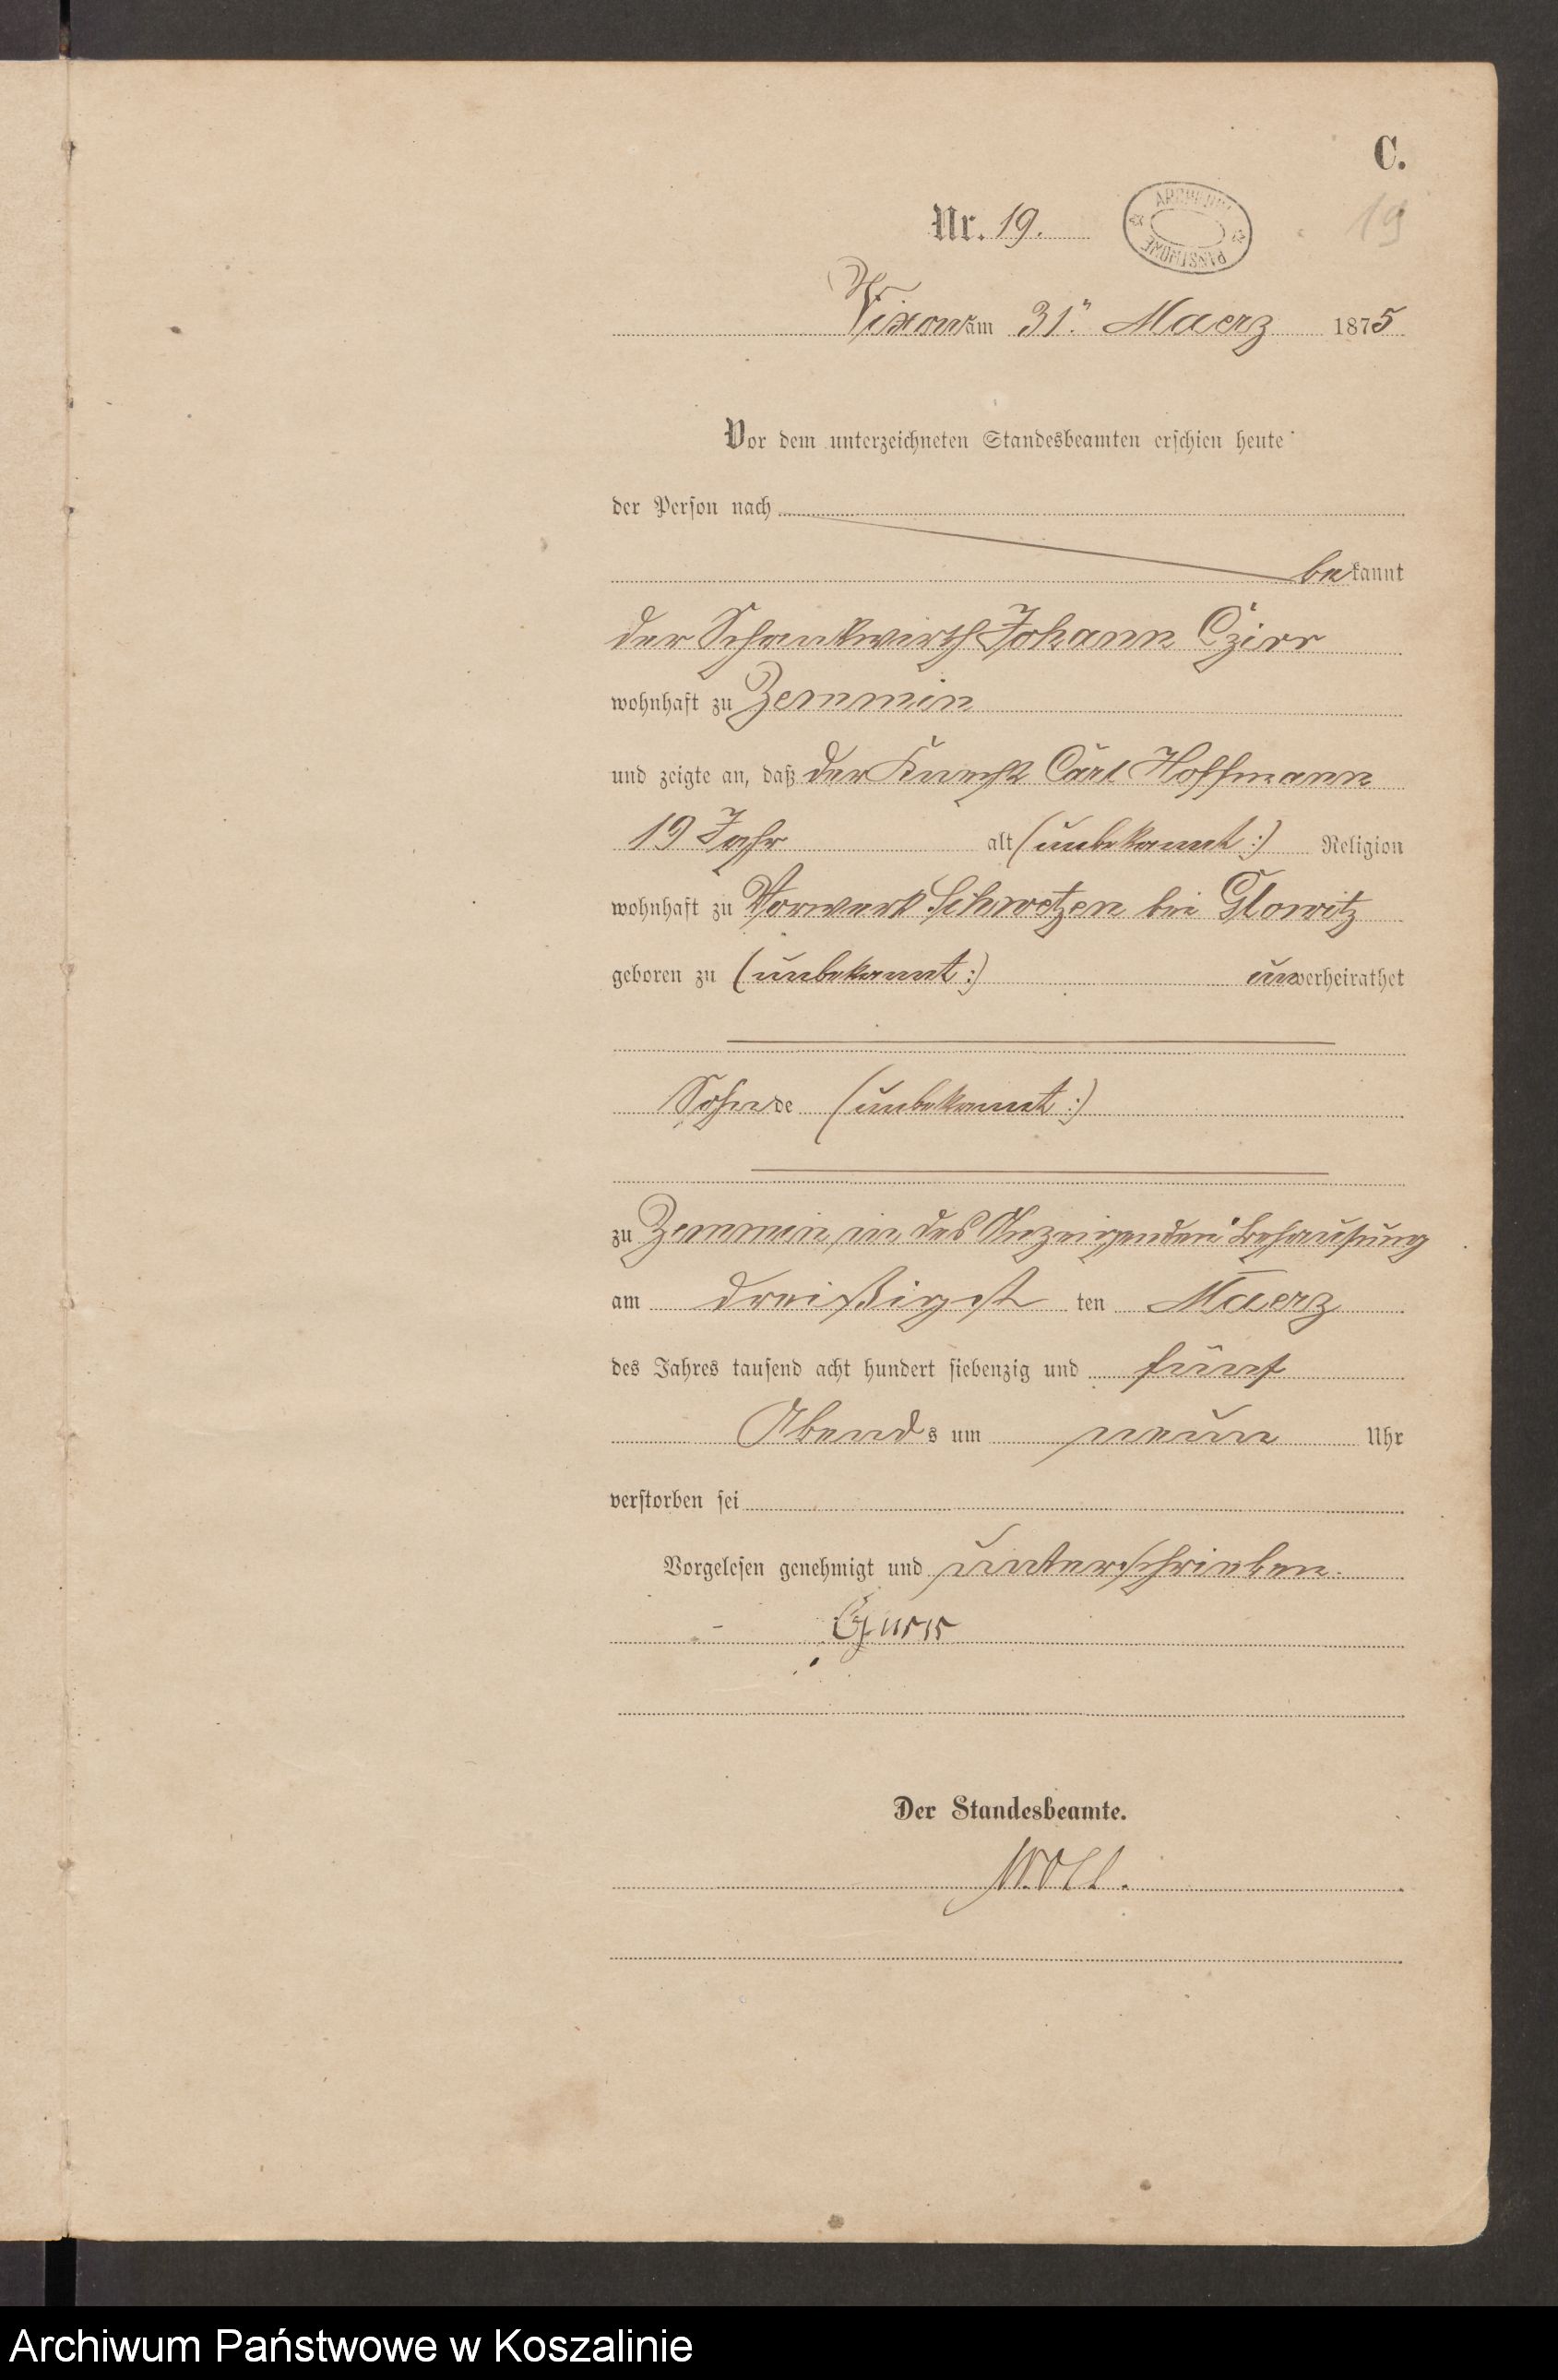 C.
Nr. 19.
ARCHIWUM PAŃSTWOWE
19
Vixow am 31ten Maerz 1875
Vor dem unterzeichneten Standesbeamten erschien heute
der Person nach
bekannt
der Schankwirth Johann Czirr
wohnhaft zu Zemmin
und zeigte an, daß der Knecht Carl Hoffmann
19 Jahr alt (unbekannt:) Religion
wohnhaft zu Vorwerk Schwetzen bei Glowitz
geboren zu (unbekannt:) unverheirathet
Sohn de (unbekannt:)
zu Zemmin, in des Anzeigenden Behausung
am dreißigst ten Maerz
des Jahres tausend acht hundert siebenzig und fünf
Abend s um neun Uhr
verstorben sei
Vorgelesen genehmigt und unterschrieben.
Der Standesbeamte.
Archiwum Państwowe w Koszalinie